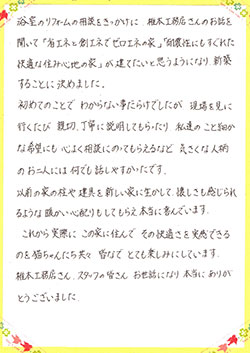 浴室のリフォームの相談をきっかけに 椎木工務店さんのお話を
聞いて「省エネと創エネでゼロエネの家」「耐震性にもすぐれた
快適な住み心地の家」が建てたいと思うようになり、新築
することに決めました。
初めてのことで わからない事だらけでしたが 現場を見に
行くたび 親切、丁寧に説明してもらったり 私達の こと細か
な希望にも 心よく相談にのってもらえるなど 気さくな人柄
のお二人には 何でも話しやすかったです。
以前の家の柱や 建具を 新しい家に生かして 懐しさも感じられ
るような 暖かい心配りもしてもらえ 本当に喜んでいます。
これから 実際に この家に住んで その快適さを 実感できる
のを 猫ちゃんたち共々 皆なで とても楽しみにしています。
椎木工務店さん、スタッフの皆さん お世話になり 本当に ありが
とうございました